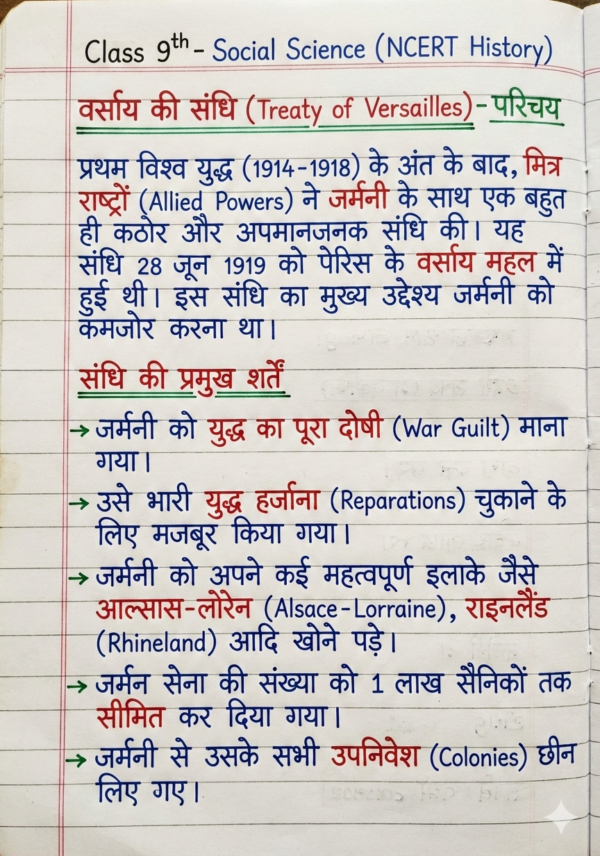 Class 9th - Social Science (NCERT History)
वर्साय की संधि (Treaty of Versailles) - परिचय
प्रथम विश्व युद्ध (1914-1918) के अंत के बाद, मित्र
राष्ट्रों (Allied Powers) ने जर्मनी के साथ एक बहुत
ही कठोर और अपमानजनक संधि की। यह
संधि 28 जून 1919 को पेरिस के वर्साय महल में
हुई थी। इस संधि का मुख्य उद्देश्य जर्मनी को
कमजोर करना था।
संधि की प्रमुख शर्तें
→ जर्मनी को युद्ध का पूरा दोषी (War Guilt) माना
गया।
→ उसे भारी युद्ध हर्जाना (Reparations) चुकाने के
लिए मजबूर किया गया।
→ जर्मनी को अपने कई महत्वपूर्ण इलाके जैसे
आल्सास-लोरेन (Alsace-Lorraine), राइनलैंड
(Rhineland) आदि खोने पड़े।
→ जर्मन सेना की संख्या को 1 लाख सैनिकों तक
सीमित कर दिया गया।
→ जर्मनी से उसके सभी उपनिवेश (Colonies) छीन
लिए गए।